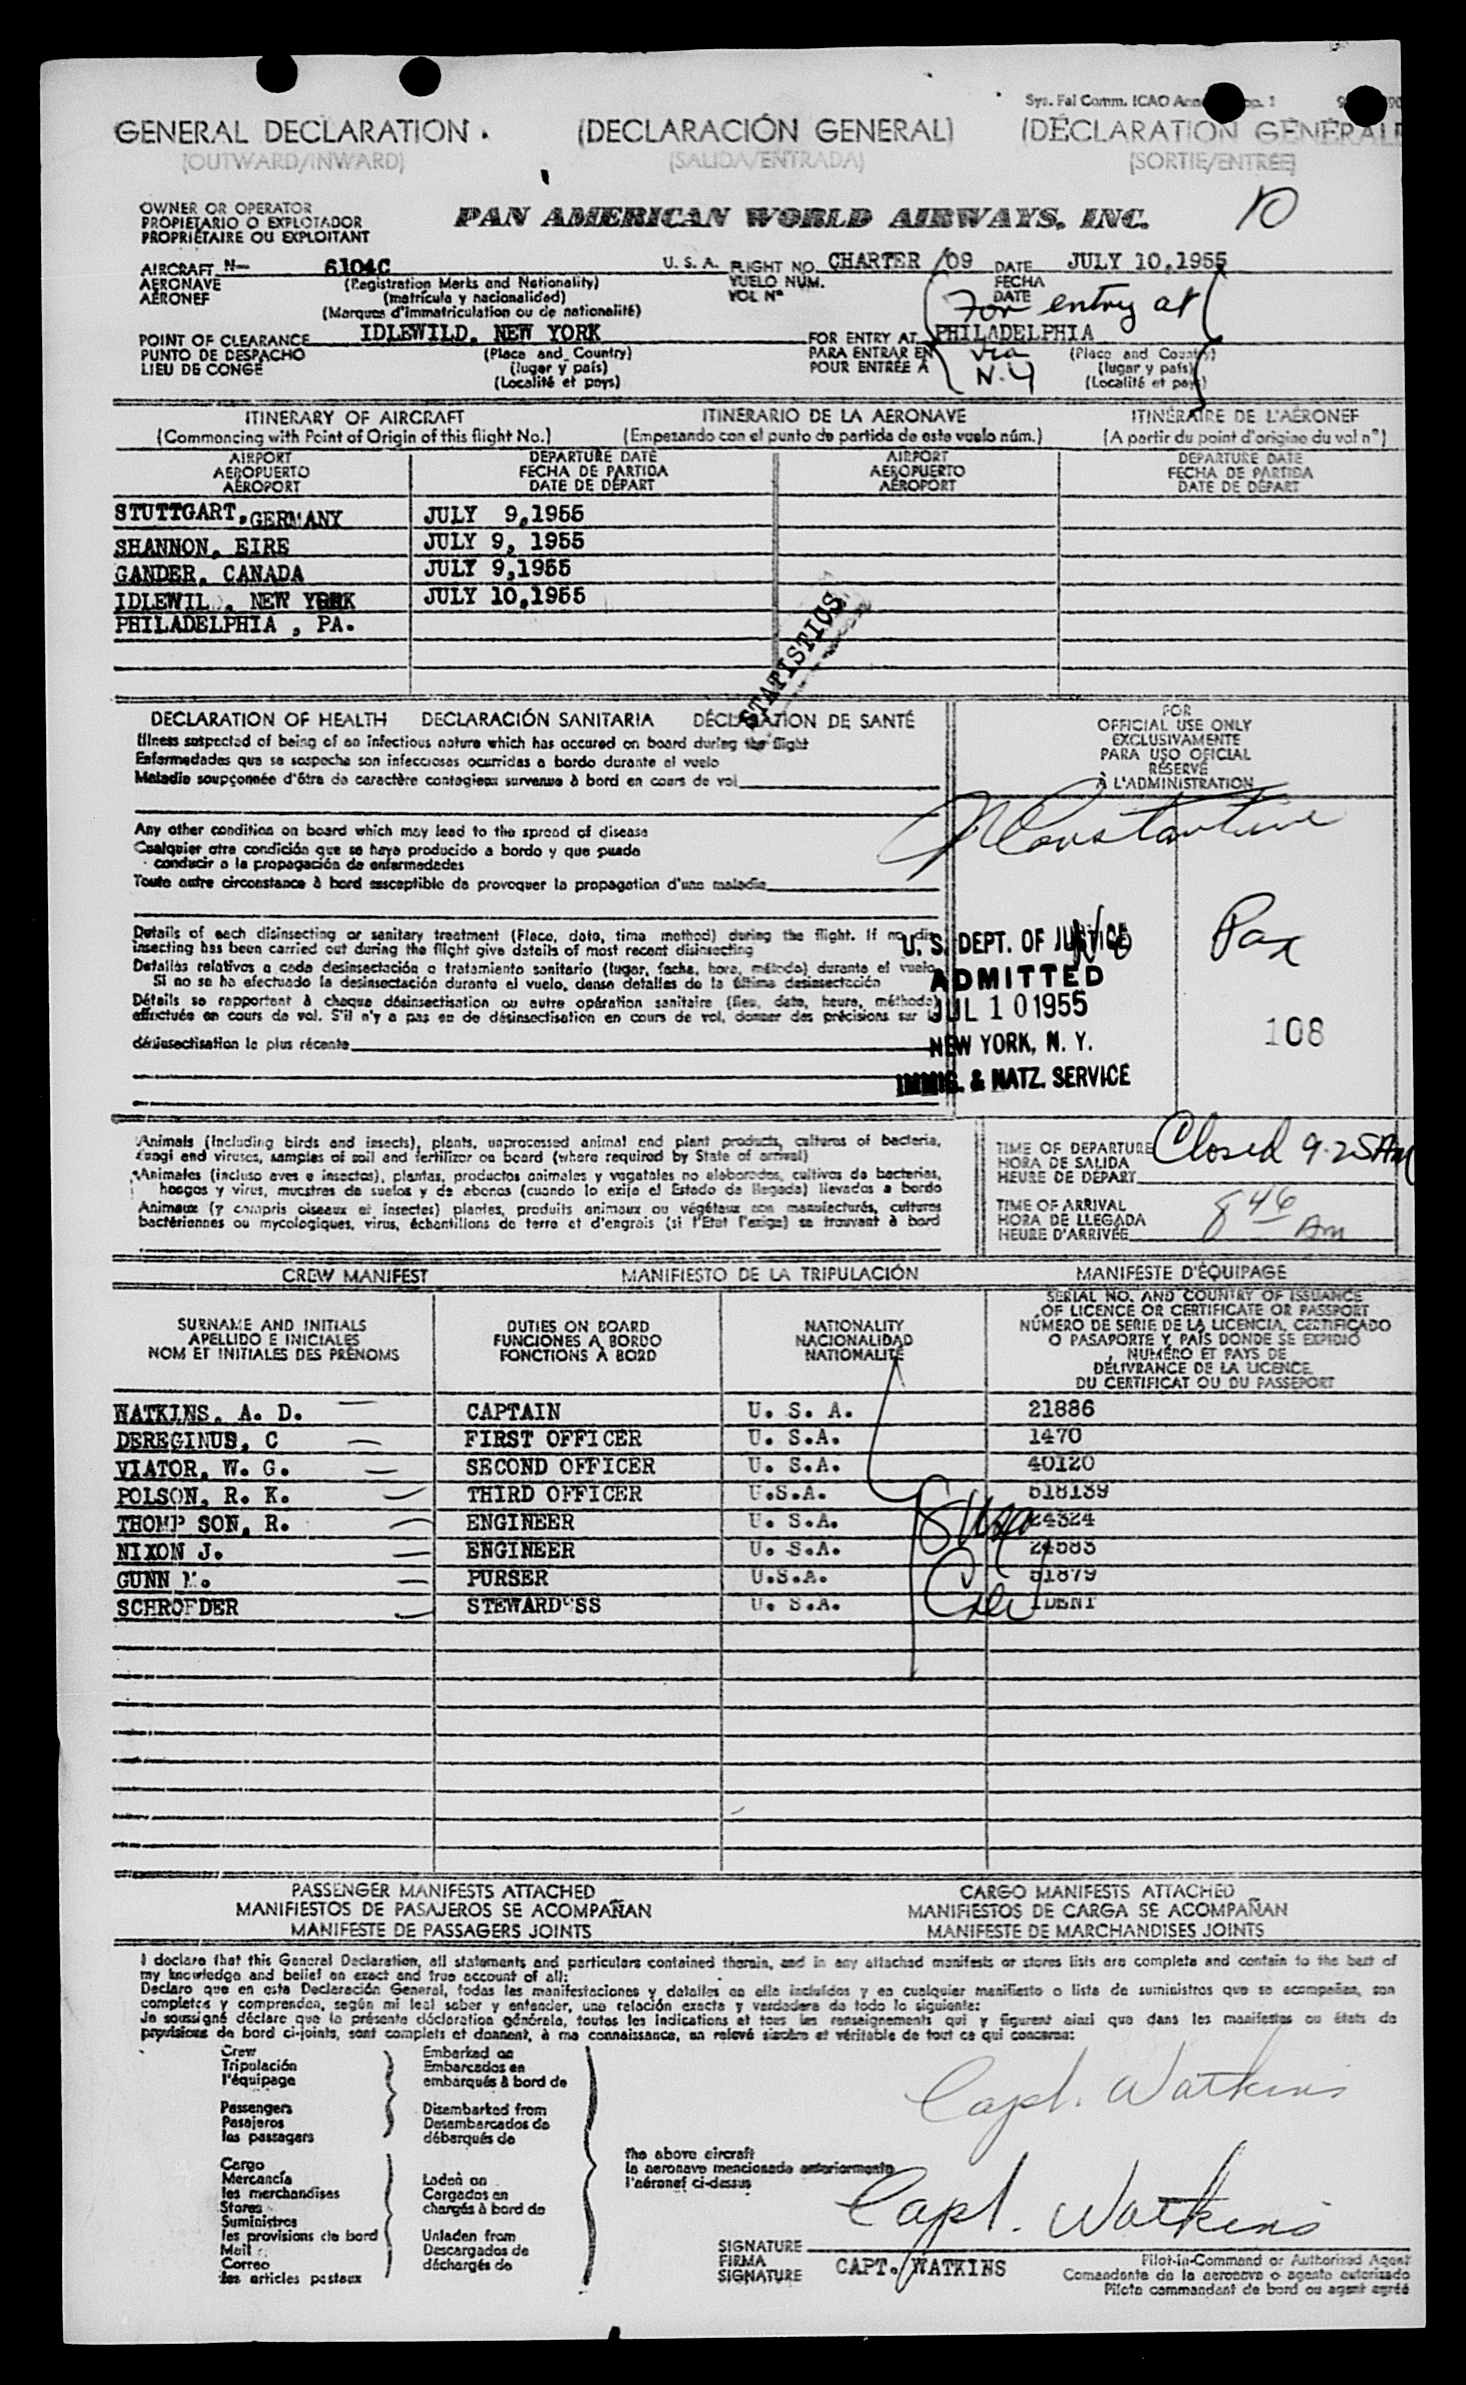 Sys. Fal Comm. ICAO
GENERAL DECLARATION . (DECLARACIÓN GENERAL) (DÉCLARATION GÉNÉRALE
(OUTWARD/INWARD) (SALIDA/ENTRADA) (SORTIE/ENTRÉE)
10
OWNER OR OPERATOR
PROPIETARIO O EXPLOTADOR
PROPRIÉTAIRE OU EXPLOITANT
PAN AMERICAN WORLD AIRWAYS, INC.
AIRCRAFT N— 6104C U. S. A. FLIGHT NO. CHARTER /09 DATE JULY 10,1955
AERONAVE (Registration Marks and Nationality) VUELO NÚM. FECHA
AÉRONEF (matrícula y nacionalidad) VOL Nº DATE
(Marques d'immatriculation ou de nationalité)
For entry at
POINT OF CLEARANCE IDLEWILD, NEW YORK FOR ENTRY AT PHILADELPHIA
PUNTO DE DESPACHO (Place and Country) PARA ENTRAR EN via (Place and Country)
LIEU DE CONGÉ (lugar y país) POUR ENTRÉE À N.Y (lugar y país)
(Localité et pays) (Localité et pays)
ITINERARY OF AIRCRAFT ITINERARIO DE LA AERONAVE ITINÉRAIRE DE L'AÉRONEF
(Commencing with Point of Origin of this flight No.) (Empezando con el punto de partida de este vuelo núm.) (A partir du point d'origine du vol nº)
AIRPORT DEPARTURE DATE AIRPORT DEPARTURE DATE
AEROPUERTO FECHA DE PARTIDA AEROPUERTO FECHA DE PARTIDA
AÉROPORT DATE DE DÉPART AÉROPORT DATE DE DÉPART
STUTTGART,GERMANY JULY 9,1955
SHANNON, EIRE JULY 9, 1955
GANDER, CANADA JULY 9,1955
IDLEWIL , NEW YORK JULY 10,1955
PHILADELPHIA , PA.
STATISTICS
DECLARATION OF HEALTH DECLARACIÓN SANITARIA DÉCLARATION DE SANTÉ
Illness suspected of being of an infectious nature which has occured on board during the flight
Enfermedades que se sospecha son infecciosas ocurridas a bordo durante el vuelo
Maladie soupçonnée d'être de caractère contagieux survenue à bord en cours de vol
Any other condition on board which may lead to the spread of disease
Cualquier otra condición que se haya producido a bordo y que pueda
conducir a la propagación de enfermedades
Toute autre circonstance à bord susceptible de provoquer la propagation d'une maladie
Details of each disinsecting or sanitary treatment (Place, date, time method) during the flight. If no dis-
insecting has been carried out during the flight give details of most recent disinsecting
Detalles relativos a cada desinsectación o tratamiento sanitario (lugar, fecha, hora, método) durante el vuelo.
Si no se ha efectuado la desinsectación durante el vuelo, dense detalles de la última desinsectación
Détails se rapportant à chaque désinsectisation ou autre opération sanitaire (lieu, date, heure, méthode)
effectuée en cours de vol. S'il n'y a pas eu de désinsectisation en cours de vol, donner des précisions sur la
désinsectisation la plus récente
FOR
OFFICIAL USE ONLY
EXCLUSIVAMENTE
PARA USO OFICIAL
RÉSERVÉ
À L'ADMINISTRATION
Constantine
Pax
108
U. S. DEPT. OF JUSTICE
ADMITTED
JUL 10 1955
NEW YORK, N. Y.
IMMIG. & NATZ. SERVICE
Animals (Including birds and insects), plants, unprocessed animal and plant products, cultures of bacteria,
fungi and viruses, samples of soil and fertilizer on board (where required by State of arrival)
Animales (incluso aves e insectos), plantas, productos animales y vegetales no elaborados, cultivos de bacterias,
hongos y virus, muestras de suelos y de abonos (cuando lo exija el Estado de llegada) llevados a bordo
Animaux (y compris oiseaux et insectes) plantes, produits animaux ou végétaux non manufacturés, cultures
bactériennes ou mycologiques, virus, échantillons de terre et d'engrais (si l'Etat l'exige) se trouvant à bord
TIME OF DEPARTURE Closed 9.25 AM
HORA DE SALIDA
HEURE DE DÉPART
TIME OF ARRIVAL 8 46 Am
HORA DE LLEGADA
HEURE D'ARRIVÉE
CREW MANIFEST MANIFIESTO DE LA TRIPULACIÓN MANIFESTE D'ÉQUIPAGE
SURNAME AND INITIALS
APELLIDO E INICIALES
NOM ET INITIALES DES PRÉNOMS
DUTIES ON BOARD
FUNCIONES A BORDO
FONCTIONS À BORD
NATIONALITY
NACIONALIDAD
NATIONALITÉ
SERIAL NO. AND COUNTRY OF ISSUANCE
OF LICENCE OR CERTIFICATE OR PASSPORT
NÚMERO DE SERIE DE LA LICENCIA, CERTIFICADO
O PASAPORTE Y PAÍS DONDE SE EXPIDIÓ
NUMÉRO ET PAYS DE
DÉLIVRANCE DE LA LICENCE,
DU CERTIFICAT OU DU PASSEPORT
WATKINS, A. D. CAPTAIN U. S. A. 21886
DEREGINUS, C FIRST OFFICER U. S.A. 1470
VIATOR, W. G. SECOND OFFICER U. S.A. 40120
POLSON, R. K. THIRD OFFICER U.S.A. 518139
THOMP SON, R. ENGINEER U. S.A. 24324
NIXON J. ENGINEER U. S.A. 24583
GUNN M. PURSER U.S.A. 51879
SCHROEDER STEWARDESS U. S.A. IDENT
8 USA
PASSENGER MANIFESTS ATTACHED CARGO MANIFESTS ATTACHED
MANIFIESTOS DE PASAJEROS SE ACOMPAÑAN MANIFIESTOS DE CARGA SE ACOMPAÑAN
MANIFESTE DE PASSAGERS JOINTS MANIFESTE DE MARCHANDISES JOINTS
I declare that this General Declaration, all statements and particulars contained therein, and in any attached manifests or stores lists are complete and contain to the best of
my knowledge and belief an exact and true account of all:
Declaro que en esta Declaración General, todas las manifestaciones y detalles en ella incluidos y en cualquier manifiesto o lista de suministros que se acompañan, son
completos y comprenden, según mi leal saber y entender, una relación exacta y verdadera de todo lo siguiente:
Je soussigné déclare que la présente déclaration générale, toutes les indications et tous les renseignements qui y figurent ainsi que dans les manifestes ou états de
provisions de bord ci-joints, sont complets et donnent, à ma connaissance, un relevé sincère et véritable de tout ce qui concerne:
Crew
Tripulación
l'équipage
Passengers
Pasajeros
les passagers
Cargo
Mercancía
les merchandises
Stores
Suministros
les provisions de bord
Mail
Correo
les articles postaux
Embarked on
Embarcados en
embarqués à bord de
Disembarked from
Desembarcados de
débarqués de
Laden on
Cargados en
chargés à bord de
Unladen from
Descargados de
déchargés de
the above aircraft
la aeronave mencionada anteriormente
l'aéronef ci-dessus
Capt. Watkins
Capt. Watkins
SIGNATURE
FIRMA
SIGNATURE
CAPT. WATKINS
Pilot-in-Command or Authorized Agent
Comandante de la aeronave o agente autorizado
Pilote commandant de bord ou agent agréé